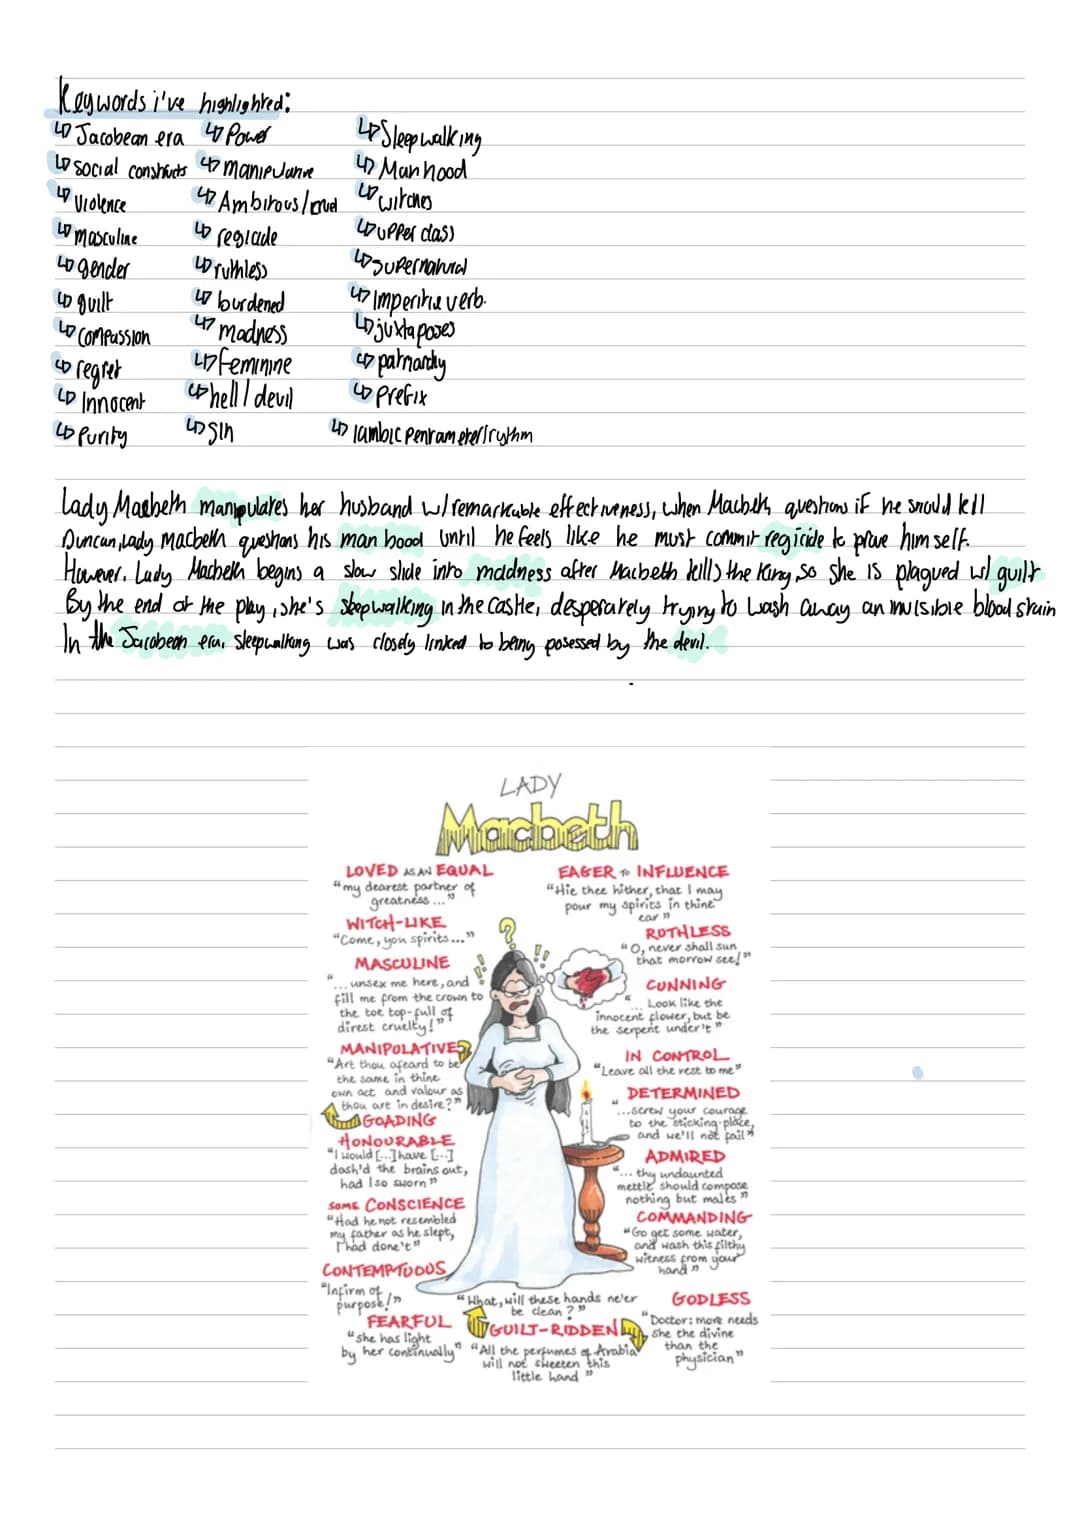 Keywords i've highlighted:
↳ Jacobean era ↳ Power ↳ Sleepwalking
↳ social constructs ↳ manipulative ↳ Manhood
↳ Violence ↳ Ambitous/cruel ↳ witches
↳ masculine ↳ regicide ↳ upper class
↳ gender ↳ ruthless ↳ supernatural
↳ guilt ↳ burdened ↳ Imperitive verb.
↳ compassion ↳ madness ↳ juxtaposes
↳ regret ↳ feminine ↳ patriarchy
↳ Innocent ↳ hell/devil ↳ Prefix
↳ Purity ↳ Sin ↳ Iambic pentrameter/rythm
Lady Macbeth manipulates her husband w/ remarkable effectiveness, when Macbeth questions if he should kill
Duncan, Lady Macbeth questions his man hood until he feels like he must commit regicide to prove himself.
However, Lady Macbeth begins a slow slide into madness after Macbeth kills the King, so she is plagued w/ guilt
By the end of the play, she's sleepwalking in the castle, desperately trying to wash away an invisible blood stain
In the Jacobean era, Sleepwalking was closely linked to being posessed by the devil.
LADY
Macbeth
LOVED AS AN EQUAL
"my dearest partner of
greatness..."
WITCH-LIKE
"Come, you spirits..."
MASCULINE
"...unsex me here, and
fill me from the crown to
the toe top-full of
direst cruelty!"
MANIPULATIVE
"Art thou afeard to be
the same in thine
own act and valour as
thou art in desire?"
GOADING
HONOURABLE
"I would [...] have [...]
dash'd the brains out,
had I so sworn"
SOME CONSCIENCE
"Had he not resembled
my father as he slept,
I had done't"
CONTEMPTUOUS
"Infirm of
purpose!"
FEARFUL
"she has light
by her continually"
EAGER TO INFLUENCE
"Hie thee hither, that I may
pour my spirits in thine
ear"
RUTHLESS
"O, never shall sun
that morrow see!"
CUNNING
"... Look like the
innocent flower, but be
the serpent under't"
IN CONTROL
"Leave all the rest to me"
DETERMINED
"...screw your courage
to the sticking-place,
and we'll not fail"
ADMIRED
"... thy undaunted
mettle should compose
nothing but males"
COMMANDING
"Go get some water,
and wash this filthy
witness from your
hand"
"What, will these hands ne'er
be clean?"
GUILT-RIDDEN
"All the perfumes of Arabia
will not sweeten this
little hand"
GODLESS
"Doctor: more needs
she the divine
than the
physician"